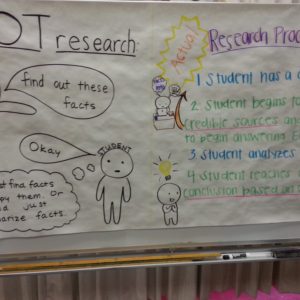 OT research
find out these
facts
Okay
STUDENT
find facts
py them. Or
just
arize facts.
Actual
Research Proc
1 Student has a
2. Student begins to
credible sources an
to begin answering
3 Student analyzes
4 Student reaches
conclusion based on